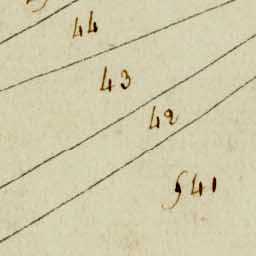 44
43
42
541